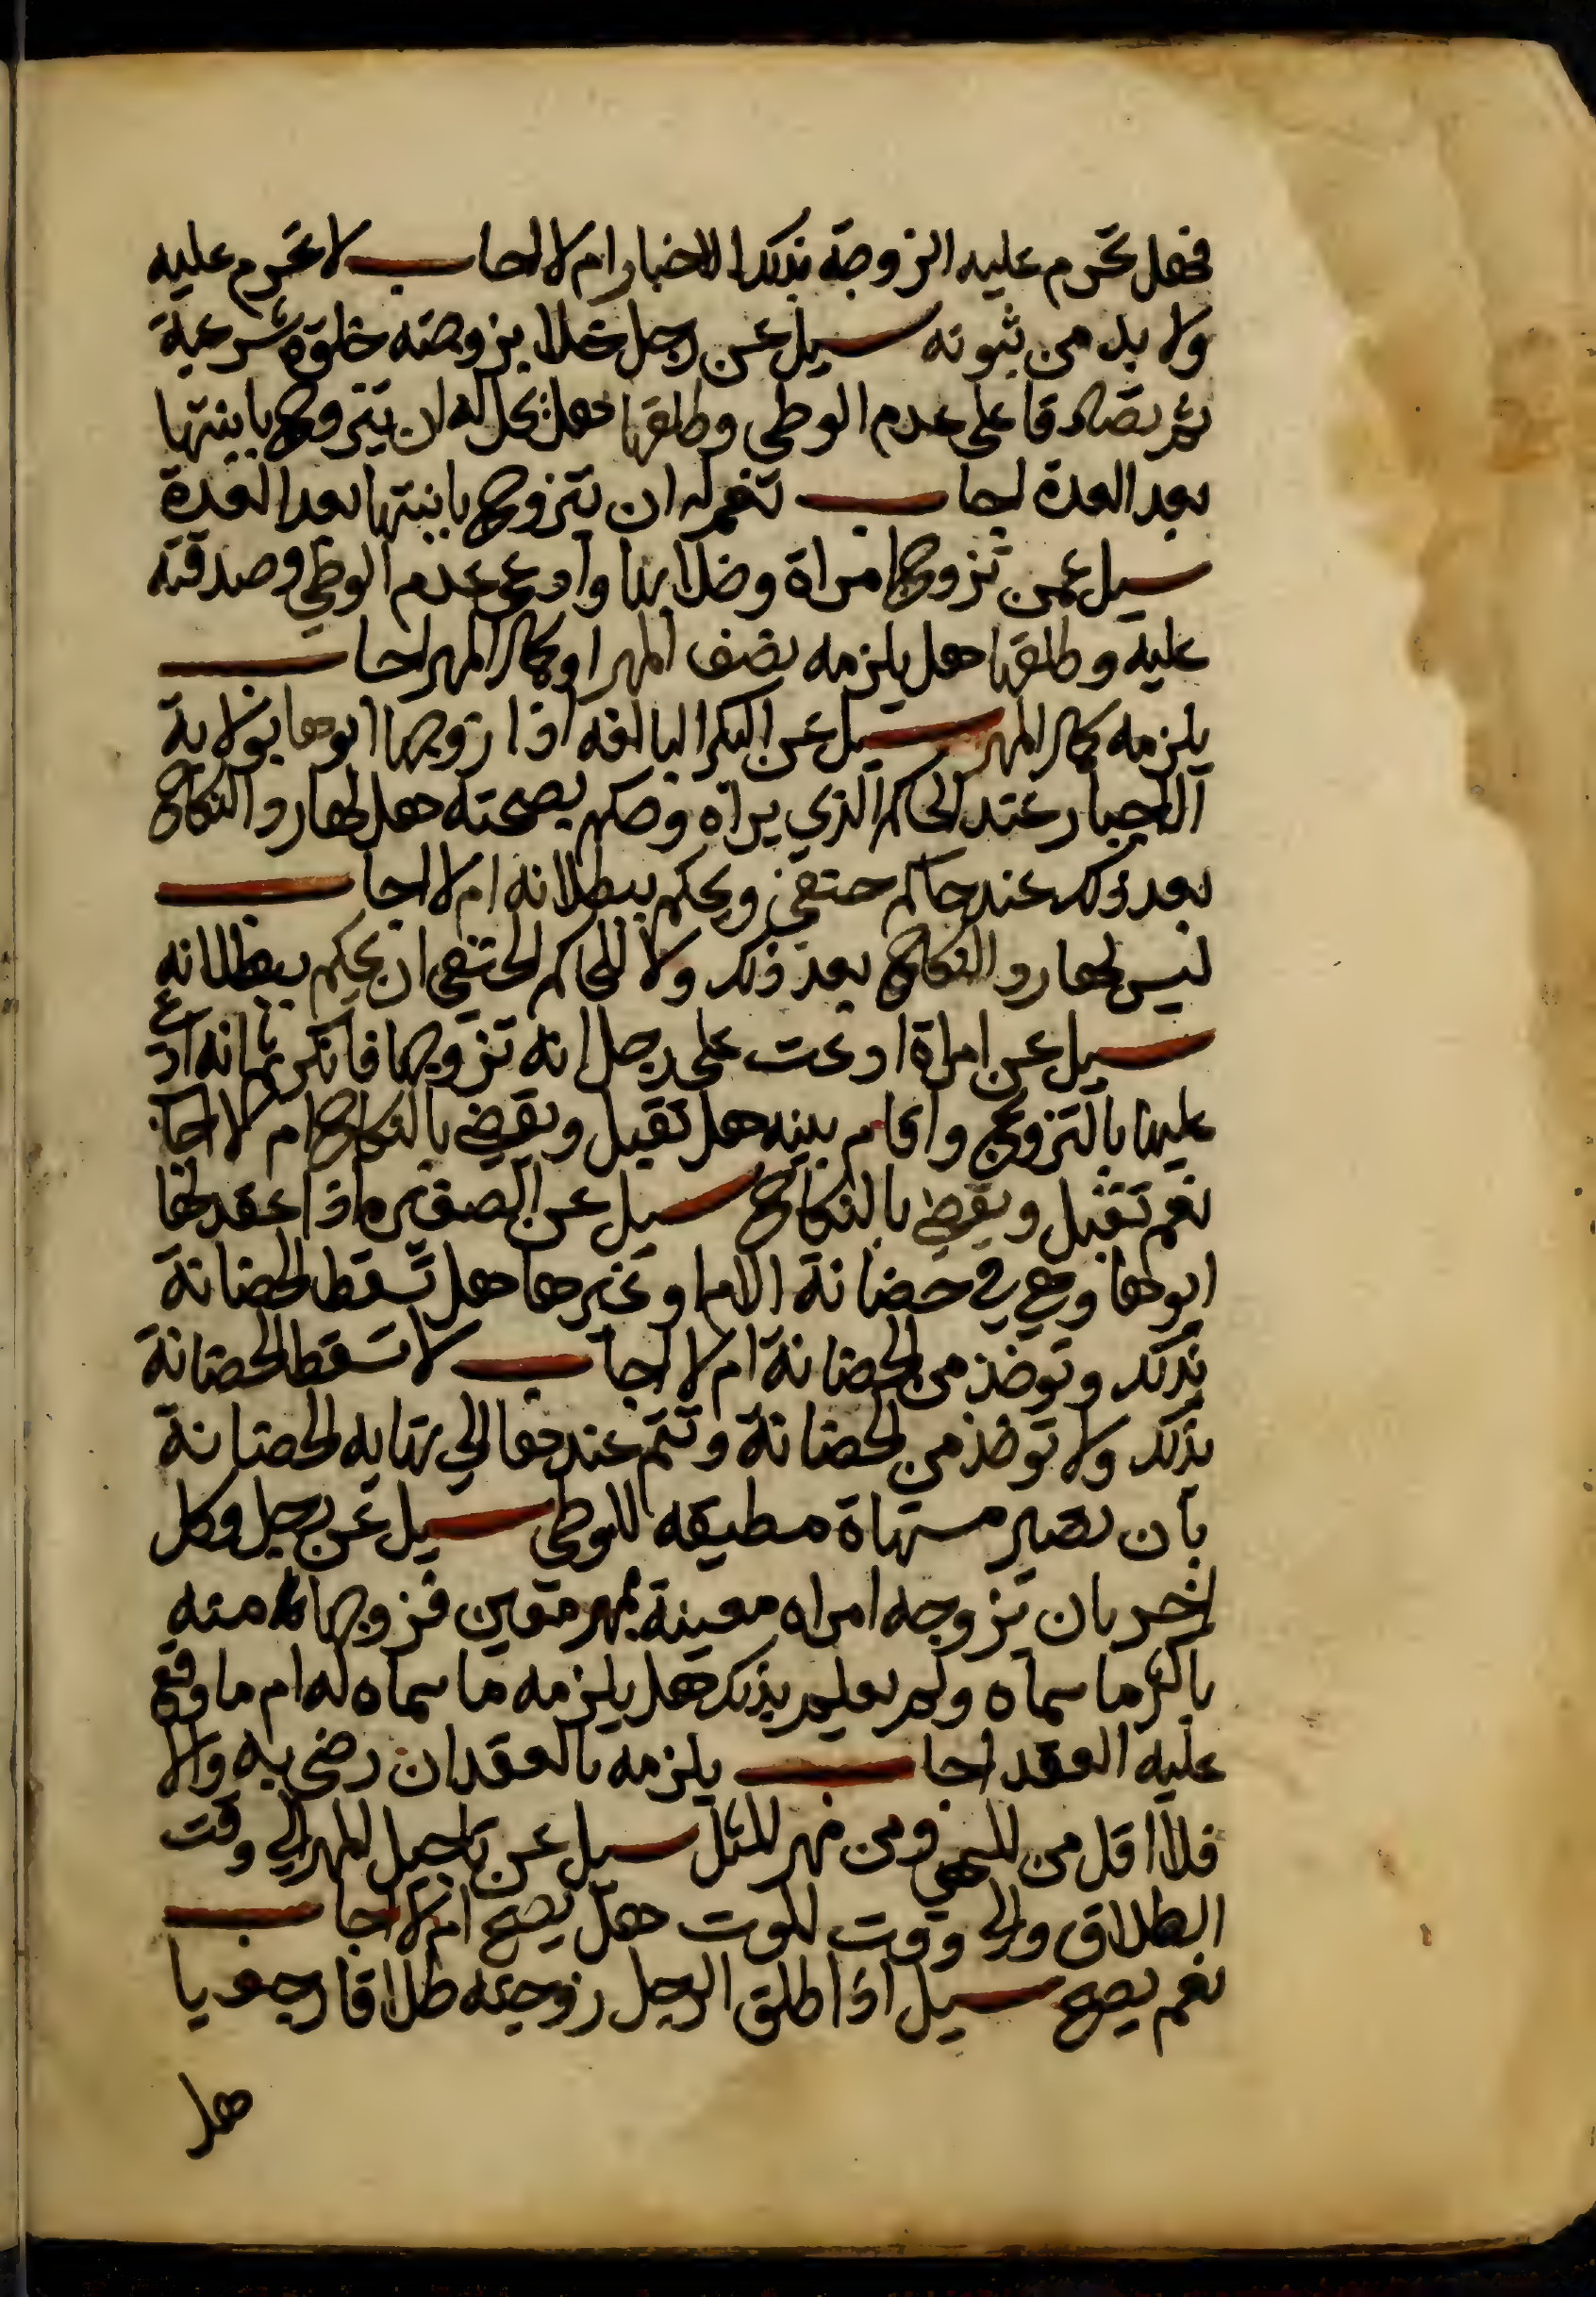 فهل تحرم عليه الزوجة بذلك الاخبار ام لا اجاب لا تحرم عليه
ولا بد من ثبوته سيل عن رجل خلا بزوجته خلوة شرعية
ثم تصادقا على عدم الوطي وطلقها هل يحل له ان يتزوج بابنتها
بعد العدة اجاب نعم له ان يتزوج بابنتها بعد العدة
سيل عمن تزوج امراة وخلا بها وادعى عدم الوطي وصدقته
عليه وطلقها هل يلزمه نصف المهر او كمال المهر اجاب
يلزمه كمال المهر سيل عن البكر البالغه اذا زوجها ابوها بولاية
الاجبار عند الحاكم الذي يراه وحكم بصحته هل لها رد النكاح
بعد ذلك عند حاكم حنفي ويحكم ببطلانه ام لا اجاب
ليس لها رد النكاح بعد ذلك ولا للحاكم الحنفي ان يحكم ببطلانه
سيل عن امراة ادعت على رجل انه تزوجها فانكر ثم انه ادعى
عليها بالتزويج واقام بينه هل تقبل ويقضي بالنكاح ام لا اجاب
نعم تقبل ويقضي بالنكاح سيل عن الصغيره اذا عقد لها
ابوها وهي في حضانة الام او غيرها هل تسقط الحضانة
بذلك وتوخذ من الحضانة ام لا اجاب لا تسقط الحضانة
بذلك ولا توخذ من الحضانة وتتم عندها الي نهايه الحضانة
بان تصير مشتهاة مطيقه للوطي سيل عن رجل وكل
اخر بان يزوجه امراه معينة بمهر معين فزوجها منه
باكثر ما سماه ولم يعلم بذلك هل يلزمه ما سماه له ام ما وقع
عليه العقد اجاب يلزمه بالعقد ان رضي به والا
فلا اقل من المسمي ومن مهر المثل سيل عن تاجيل المهر الي وقت
الطلاق والى وقت الموت هل يصح ام لا اجاب
نعم يصح سيل اذا طلق الرجل زوجته طلاقا رجعيا
هل